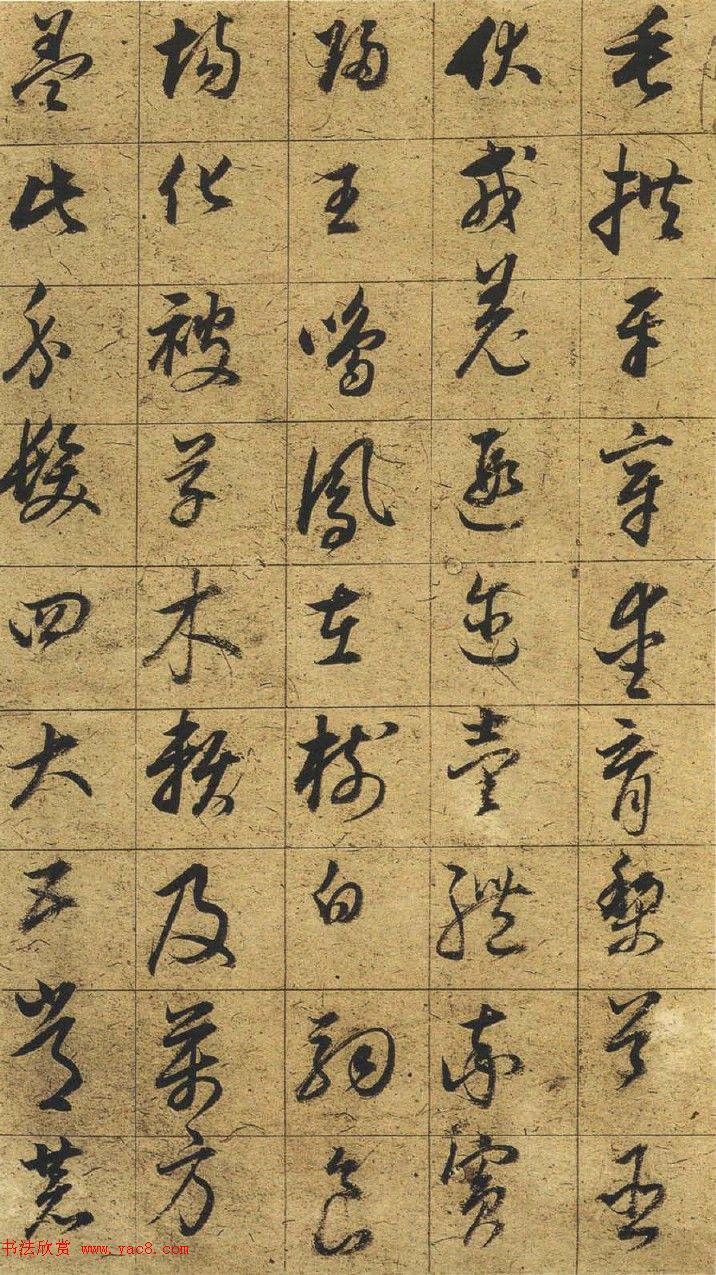 垂拱平章愛育黎首臣
伏戎羌遐迩壹體率賓
歸王鳴鳳在樹白駒食
場化被草木賴及萬方
蓋此身髮四大五常恭
书法欣赏 www.yac8.com